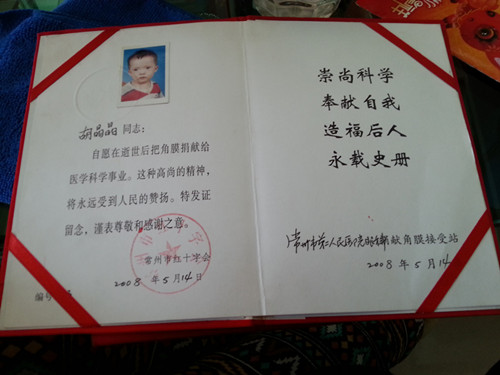 胡晶晶 同志：
自愿在逝世后把角膜捐献给
医学科学事业。这种高尚的精神，
将永远受到人民的赞扬。特发证
留念，谨表尊敬和感谢之意。
常州市红十字会
2008 年 5 月 14 日
编号
崇尚科学
奉献自我
造福后人
永载史册
常州市第二人民医院 献角膜接受站
2008 年 5 月 14